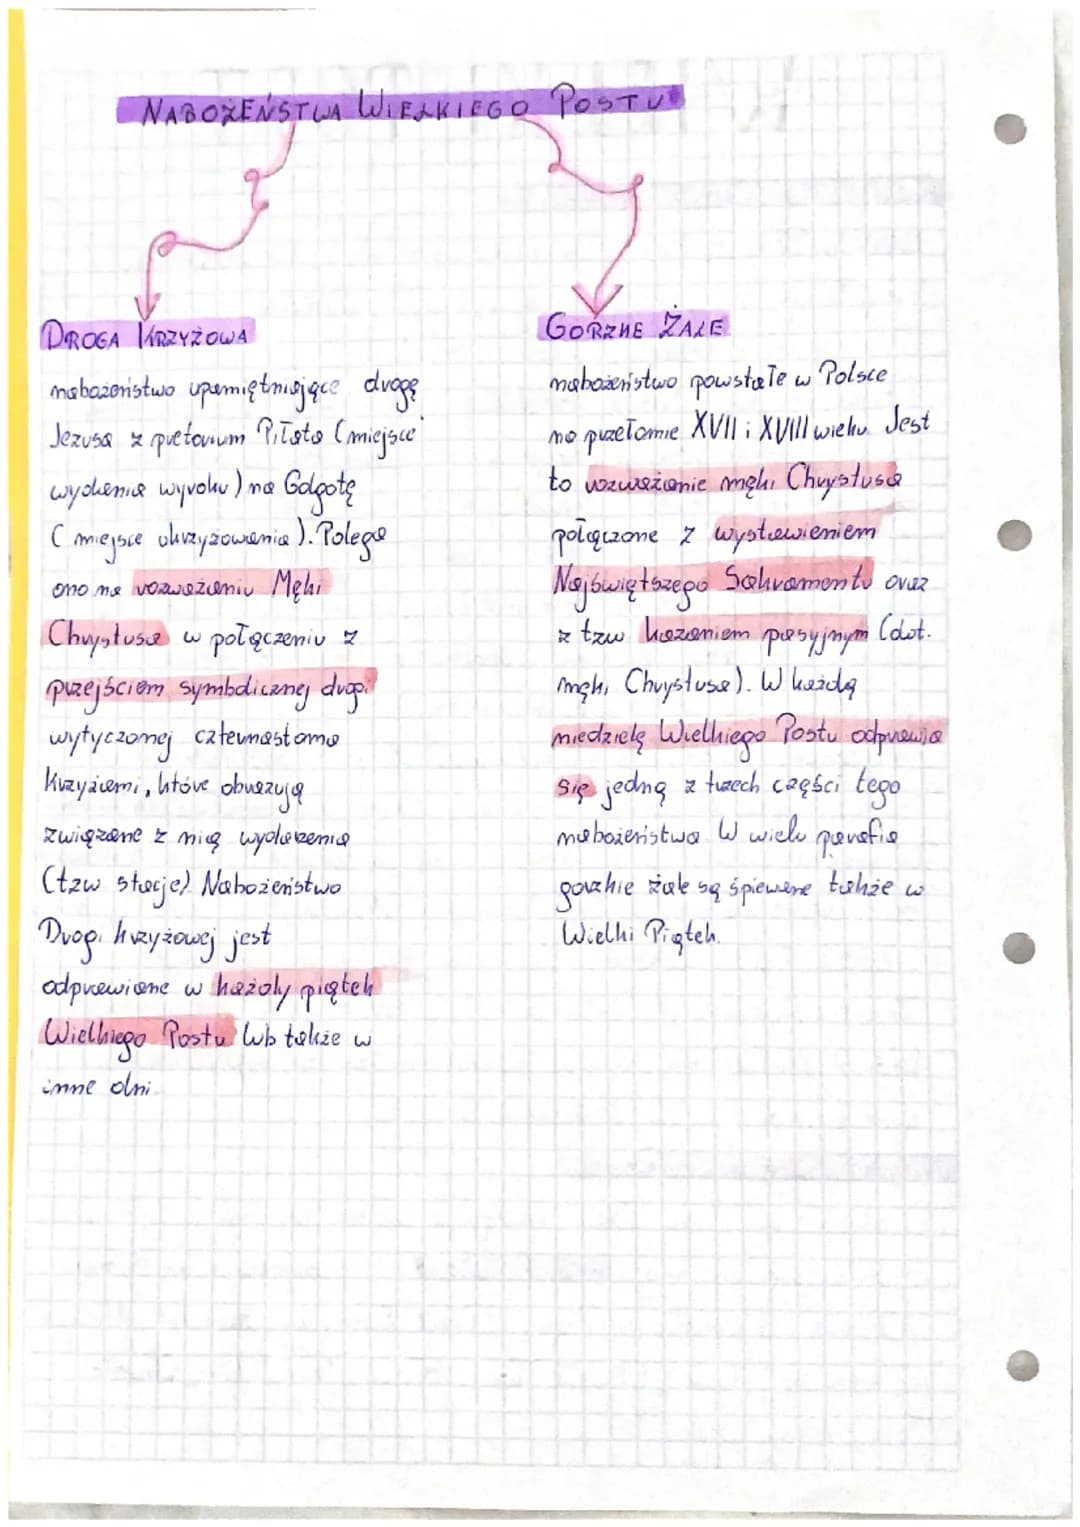 NABOŻEŃSTWA WIELKIEGO POSTU
DROGA KRZYŻOWA
nabożeństwo upamiętniające drogę
Jezusa z pretorium Piłata (miejsce
wydania wyroku) na Golgotę
(miejsce ukrzyżowania). Polega
ono na rozważaniu Męki
Chrystusa w połączeniu z
przejściem symbolicznej drogi
wytyczonej czternastoma
krzyżami, które obrazują
związane z nią wydarzenia
(tzw stacje). Nabożeństwo
Drogi krzyżowej jest
odprawiane w każdy piątek
Wielkiego Postu lub także w
inne dni.
GORZKIE ŻALE
nabożeństwo powstałe w Polsce
na przełomie XVII i XVIII wieku. Jest
to rozważanie męki Chrystusa
połączone z wystawieniem
Najświętszego Sakramentu oraz
z tzw kazaniem pasyjnym (dot.
męki Chrystusa). W każdą
niedzielę Wielkiego Postu odprawia
się jedną z trzech części tego
nabożeństwa. W wielu parafia
gorzkie żale są śpiewane także w
Wielki Piątek.